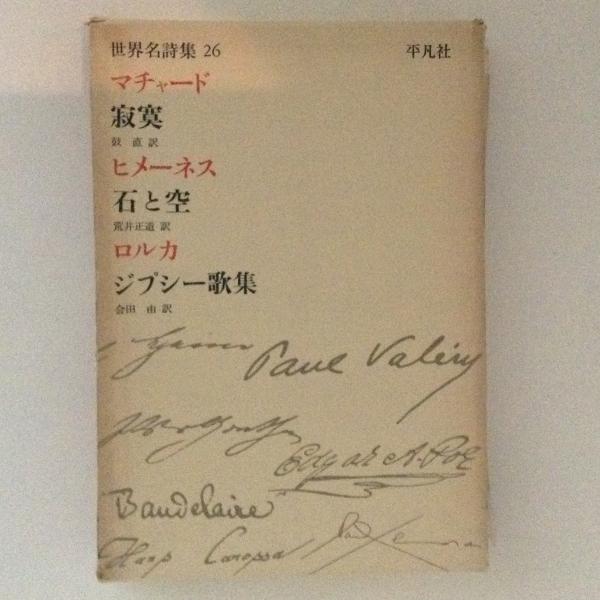 世界名詩集 26
平凡社
マチャード
寂寞
鼓 直 訳
ヒメーネス
石と空
荒井正道 訳
ロルカ
ジプシー歌集
会田 由 訳
Paul Valéry
Edgar A. Poe
Baudelaire
Hans Carossa